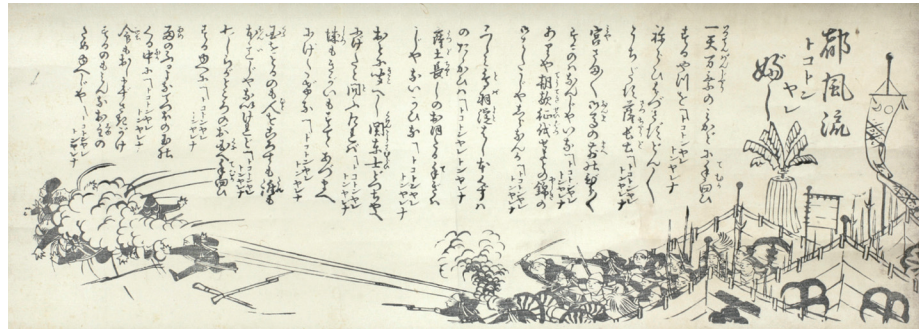 都風流
トコトン
ヤレ
ぶし
一天万乗のみかどに手向ひ
するやつを トコトンヤレトンヤレナ
ねらひはづさずどん〳〵
うちだす薩長土 トコトンヤレトンヤレナ
宮さま〳〵御馬の前のびら〳〵
するのはなんじやいな トコトンヤレトンヤレナ
あれは朝敵征伐せよとの錦の
御はたじやしらなんか トコトンヤレトンヤレナ
ふしみ鳥羽淀はし本くずは
のたゝかひは トコトンヤレトンヤレナ
薩土長しの 手ぎは
じやないかいな トコトンヤレトンヤレナ
おとに聞へし関東士どつちやへ
にげたと問ふたれば トコトンヤレトンヤレナ
城もきがいもすてゝあづまへ
にげたげな トコトンヤレトンヤレナ
国をとるのも人をころすも誰も
本意じやないけれど トコトンヤレトンヤレナ
わしらがところのお国へ手向ひ
するゆへに トコトンヤレトンヤレナ
雨のふるよふなてつぽの玉の
くる中に トコトンヤレトンヤレナ
命もおしまず先がけ
するのもみんなおぬしの
ためゆへじや トコトンヤレトンヤレナ